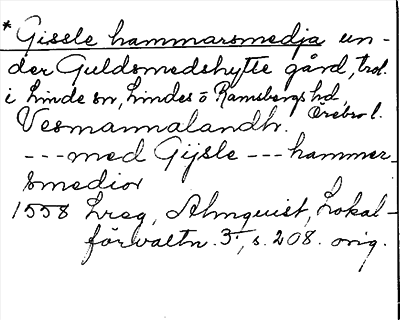 * Gissle hammarsmedja un-
der Guldsmedshytte gård, trol.
i Linde sn, Lindes o Ramsbergs hd,
Örebro l.
Vesmannalandh.
---med Gijsle --- hammer-
smedior
1558 Lreg, Almquist, Lokal-
förvaltn. 3:, s. 208. orig.